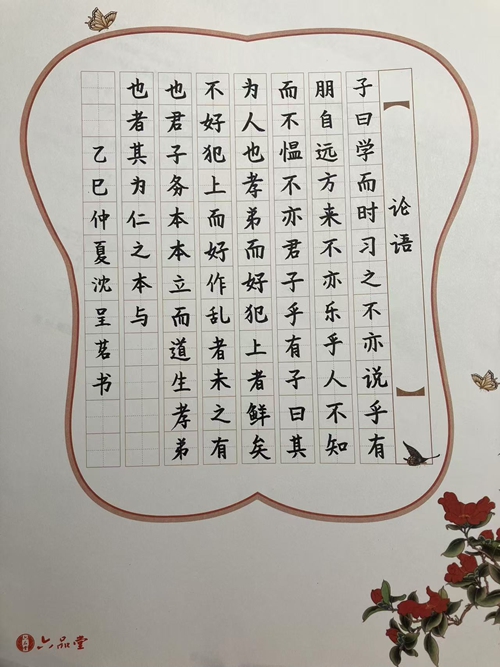 论语
子曰学而时习之不亦说乎有
朋自远方来不亦乐乎人不知
而不愠不亦君子乎有子曰其
为人也孝弟而好犯上者鲜矣
不好犯上而好作乱者未之有
也君子务本本立而道生孝弟
也者其为仁之本与
乙巳仲夏沈呈茗书
六品堂